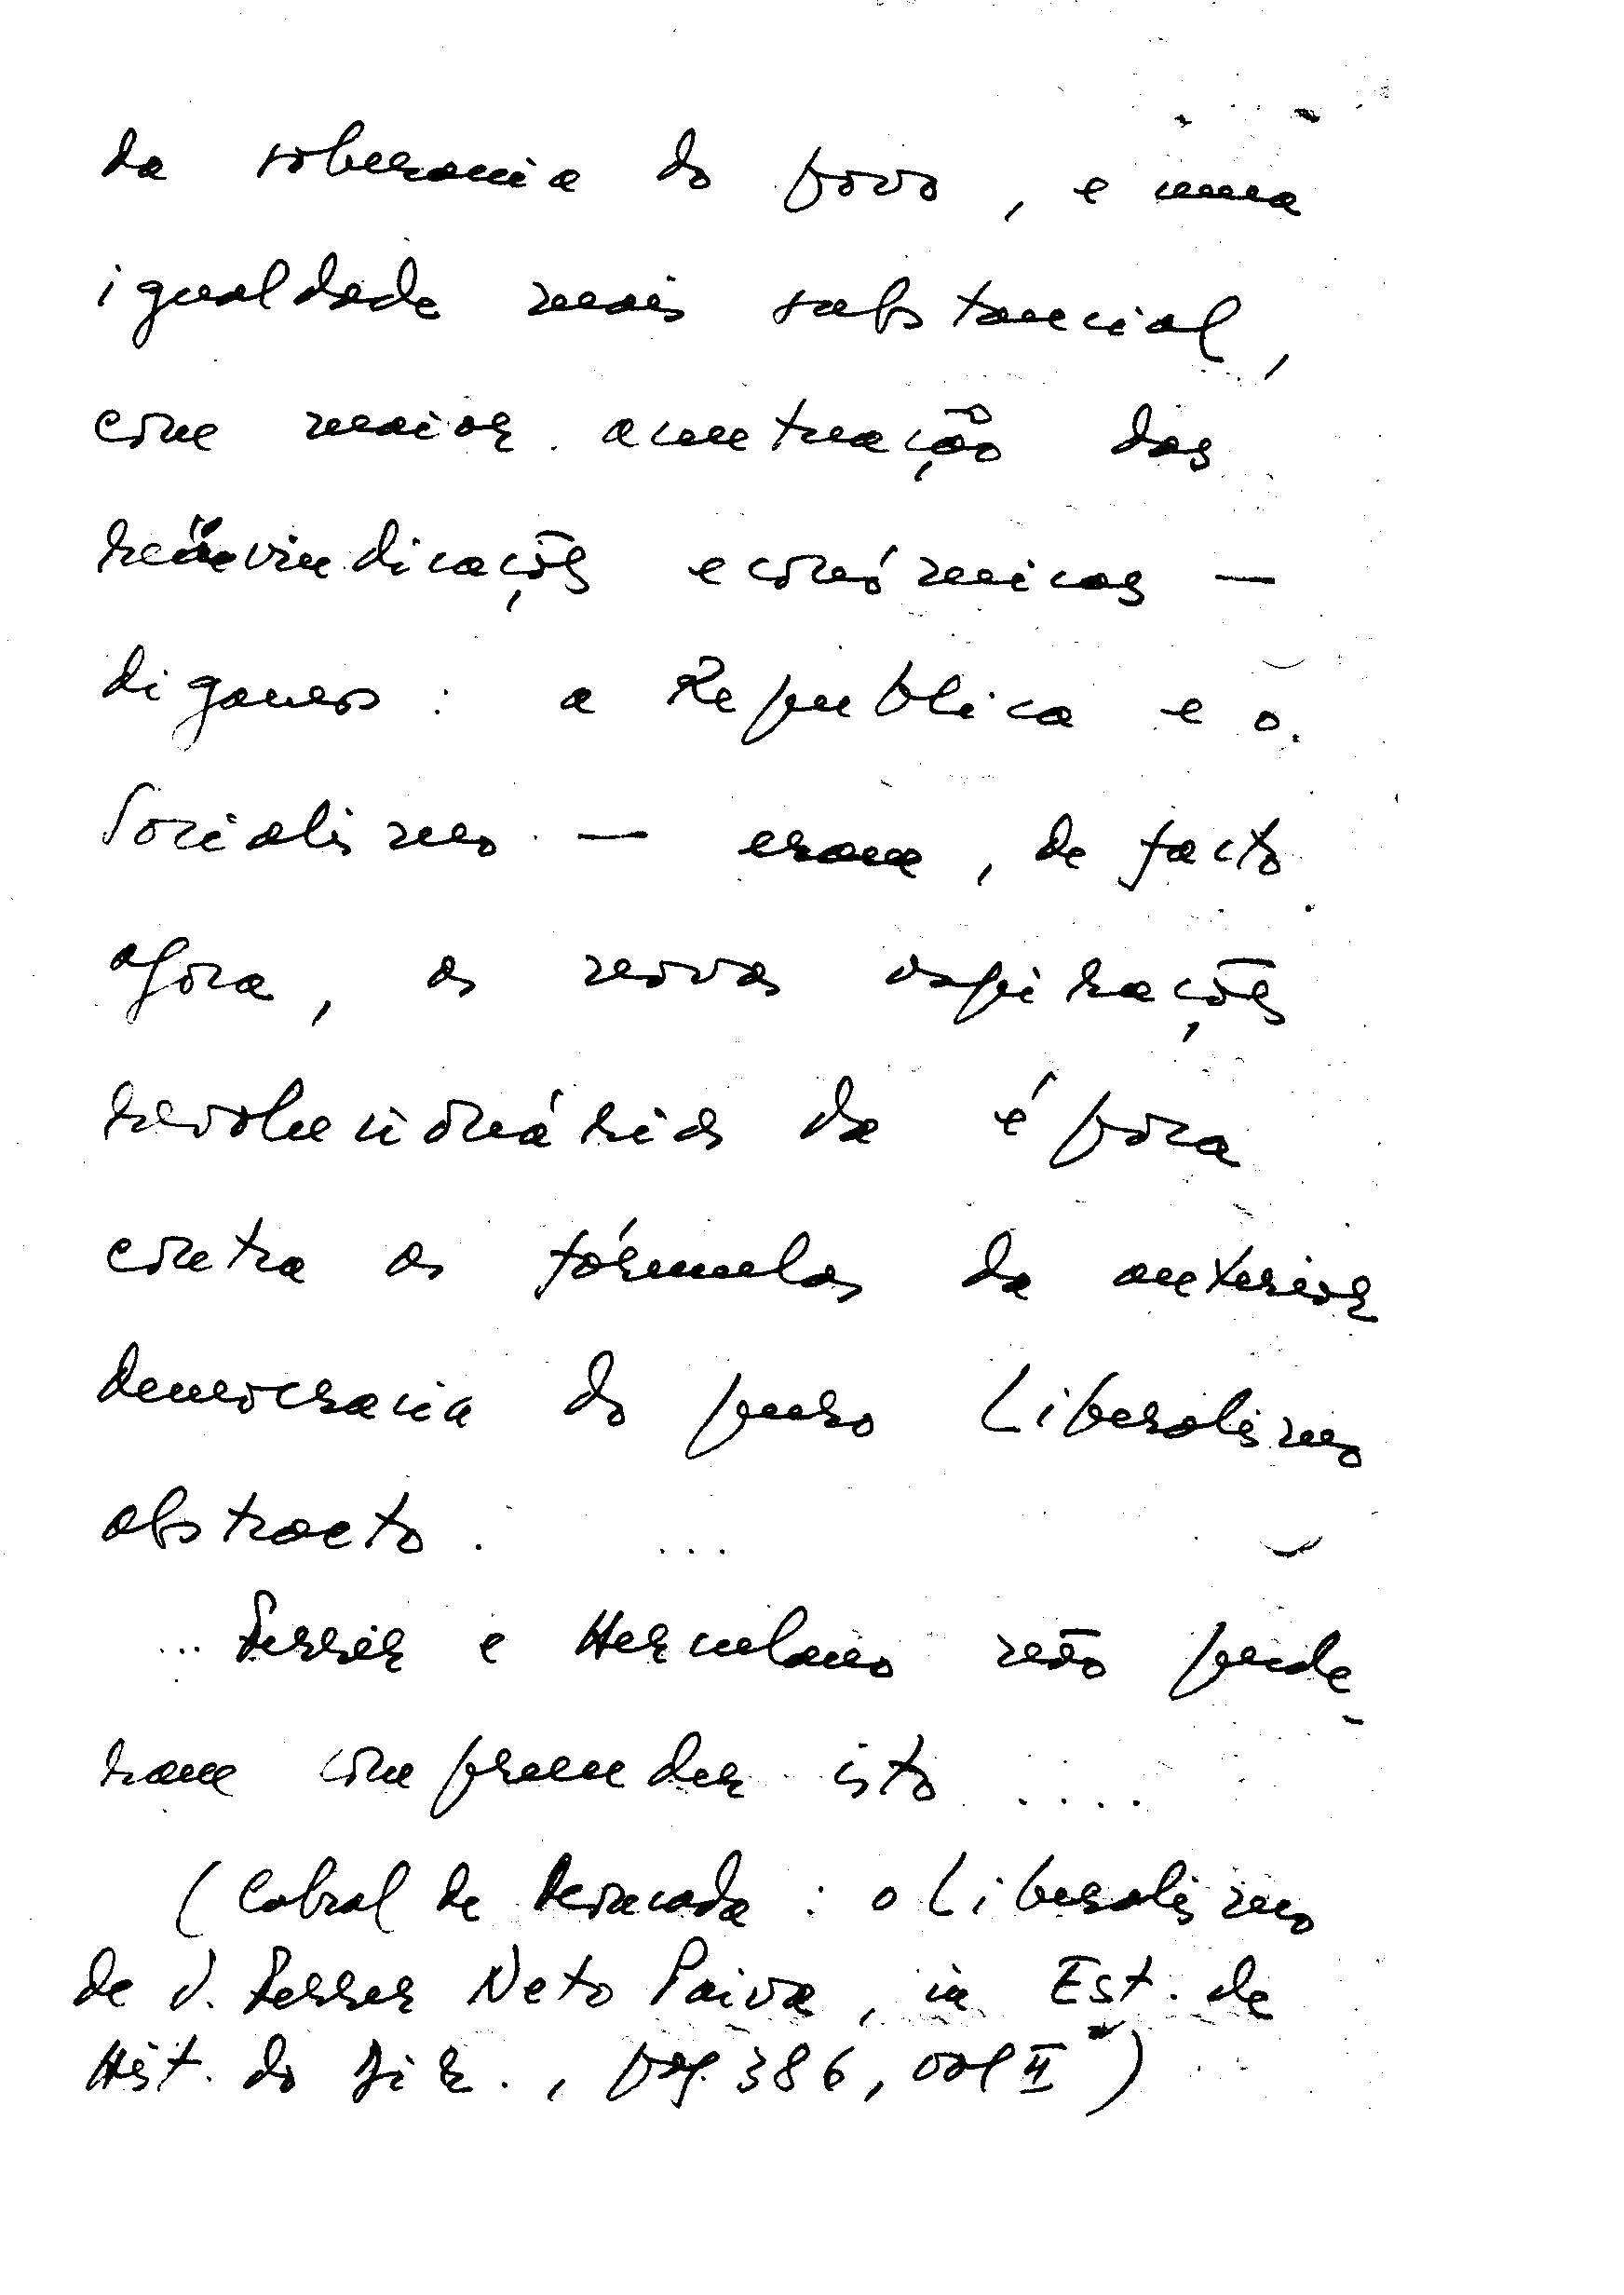 da soberania do povo, e uma
igualdade mais substancial,
com maior acentuação das
reinvindicações económicas —
digamos: a Republica e o
Socialismo — eram, de facto
agora, as novas aspirações
revolucionárias da época
contra as fórmulas da anterior
democracia do puro Liberalismo
abstracto. ...
... Ferrer e Herculano não pude
ram compreender isto ....
(Cabral de Moncada: o Liberalismo
de V. Ferrer Neto Paiva, in Est. de
Hist. do Dir., pag. 386, vol II)